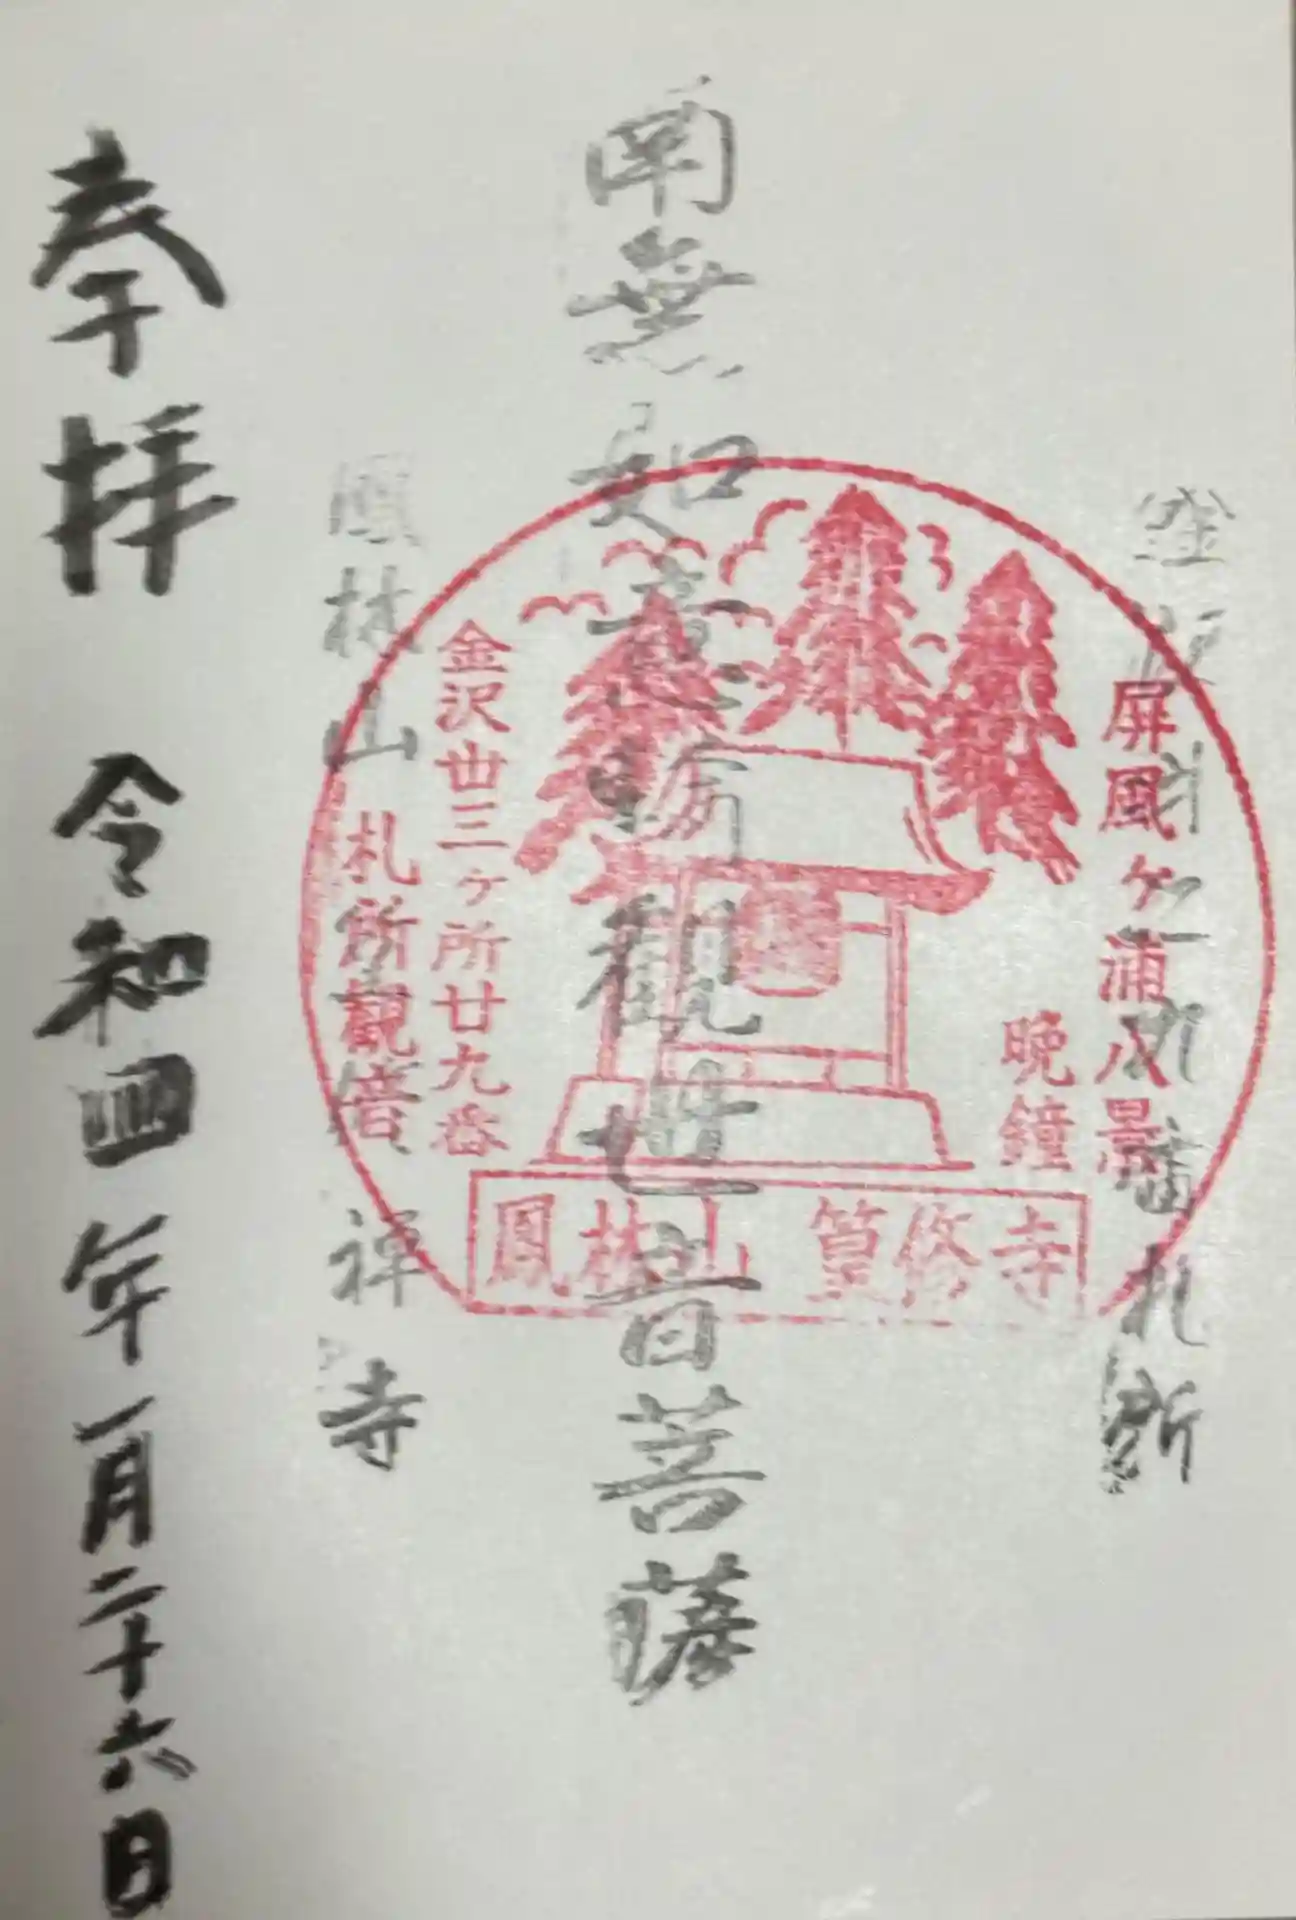 札所
屏風ヶ浦八景
晩鐘
南無如意輪観世音菩薩
金沢丗三ヶ所廿九番
札所観音
鳳林山 篁修寺
鳳林山
禅寺
奉拝 令和四年一月二十六日